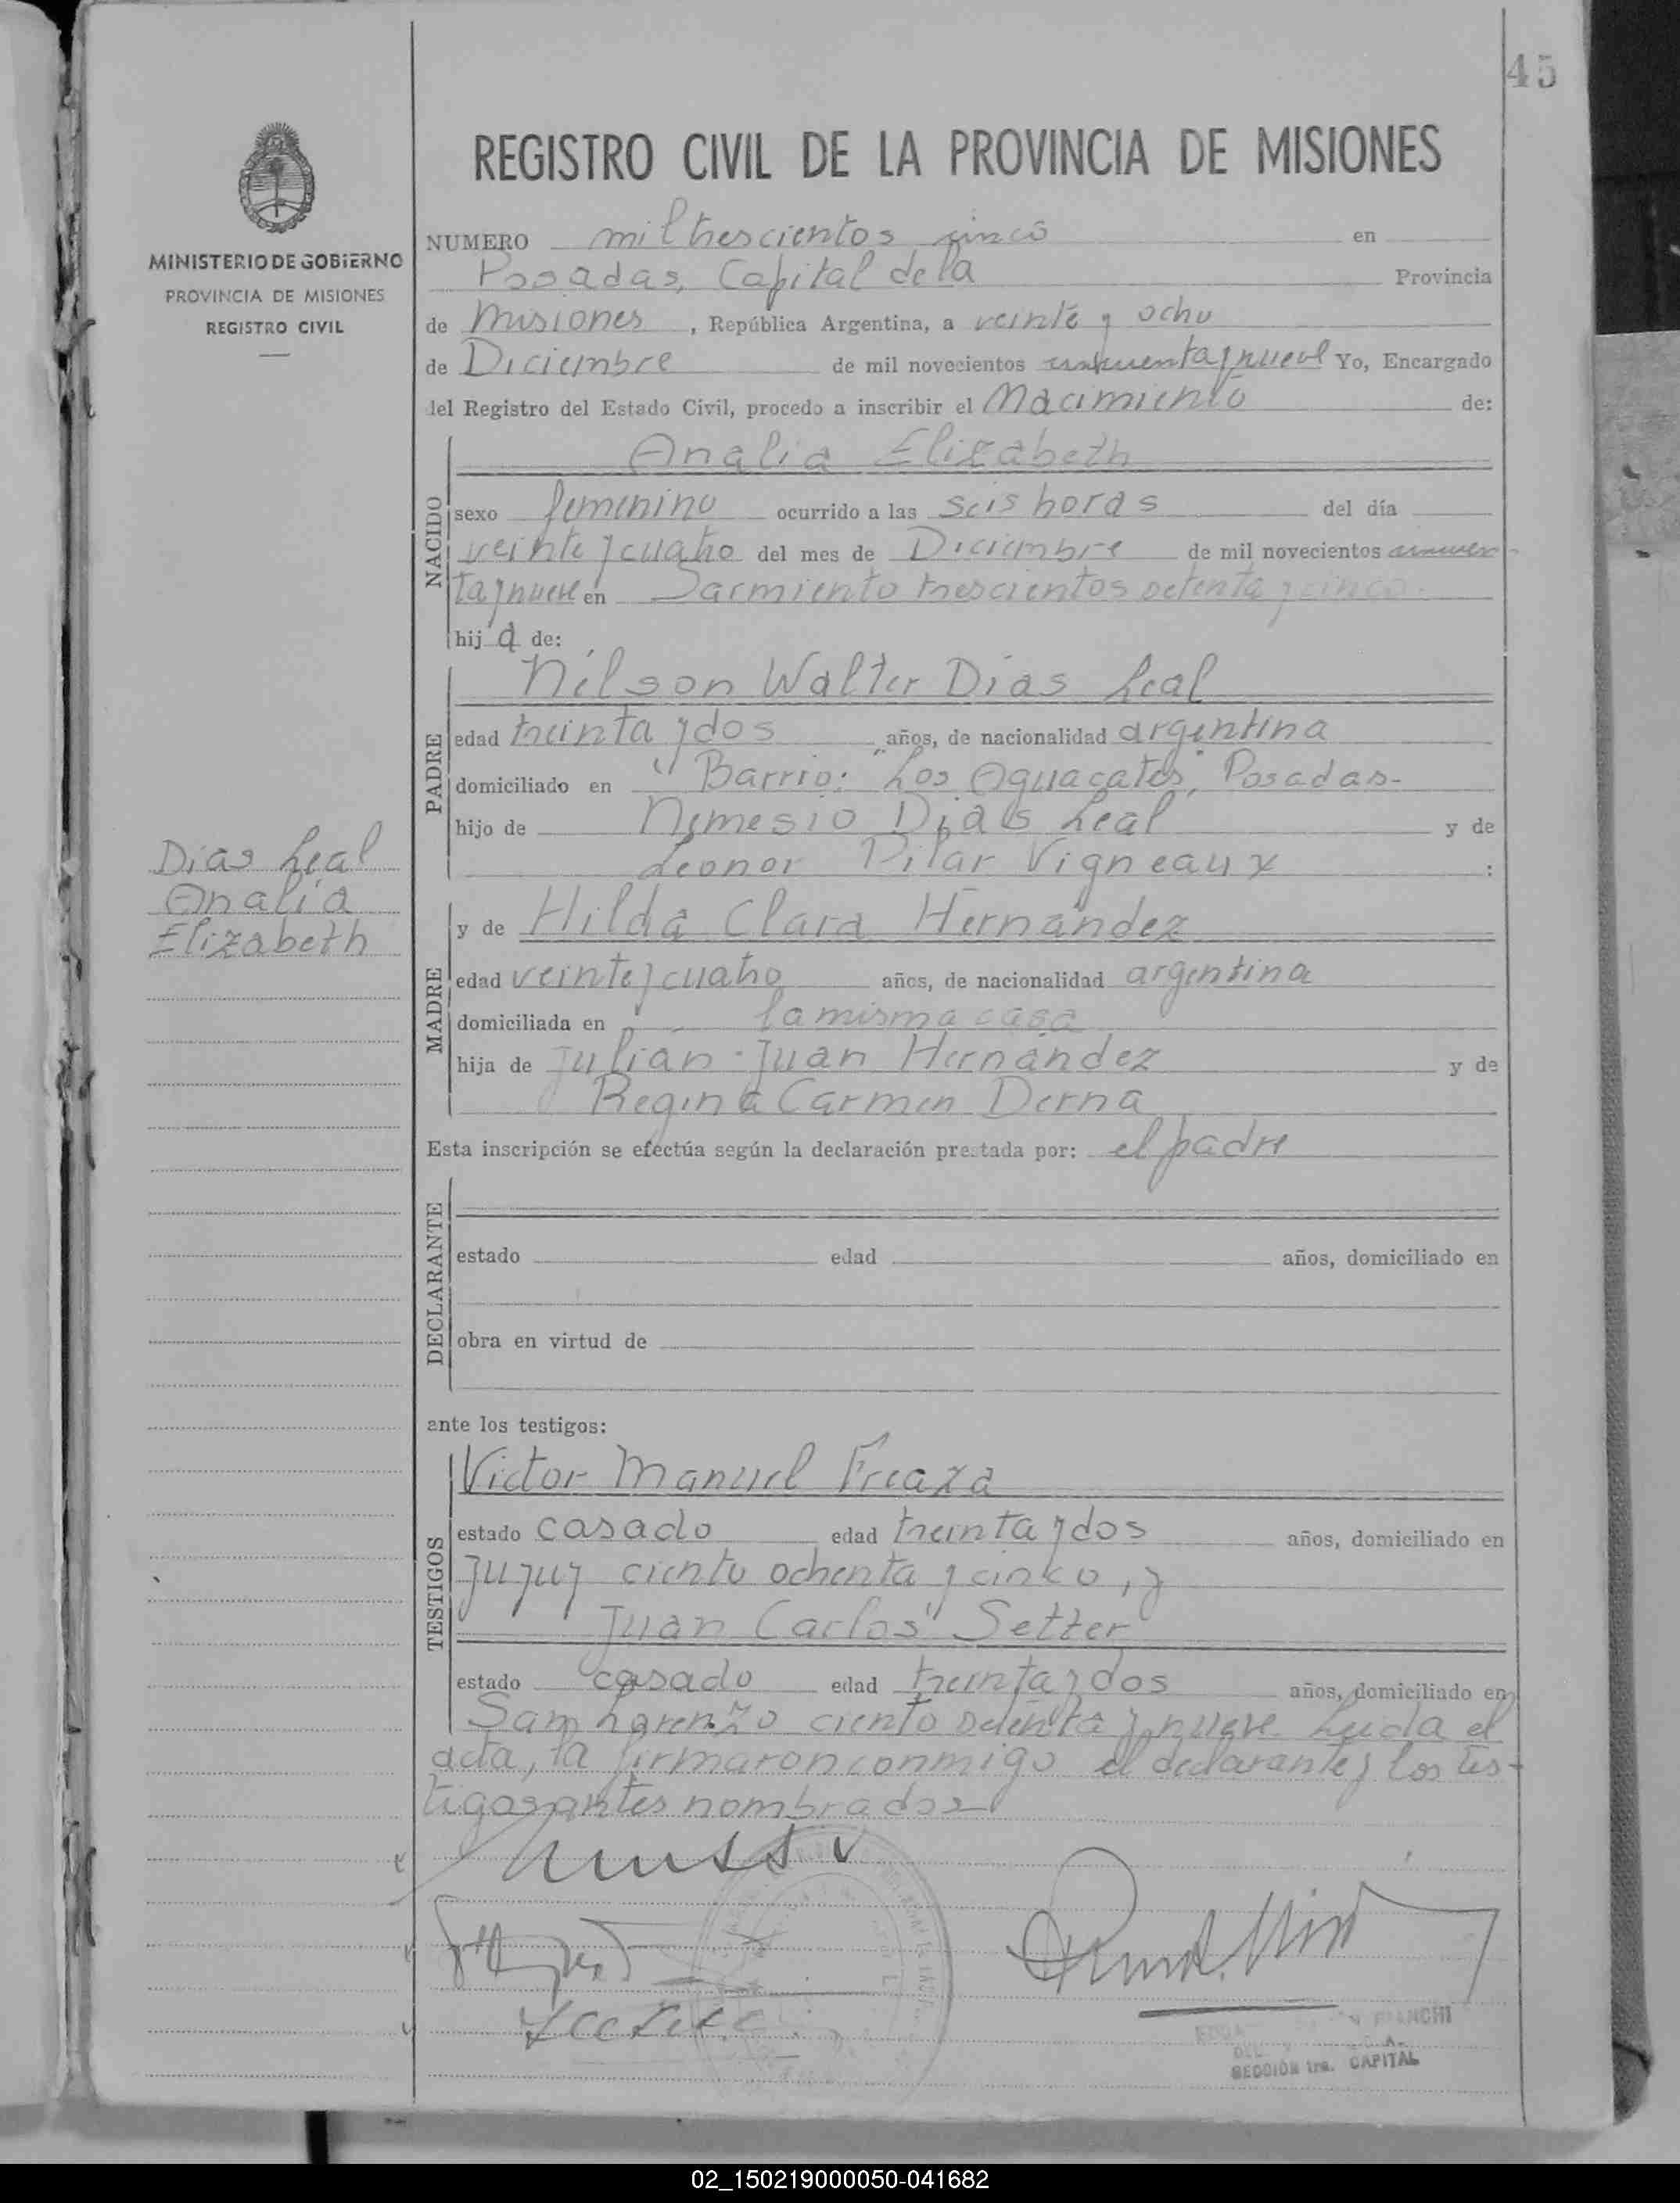 45
REGISTRO CIVIL DE LA PROVINCIA DE MISIONES
MINISTERIO DE GOBIERNO
PROVINCIA DE MISIONES
REGISTRO CIVIL
NUMERO mil trescientos cinco en
Posadas, Capital de la Provincia
de Misiones, República Argentina, a veinte y ocho
de Diciembre de mil novecientos cincuenta y nueve Yo, Encargado
del Registro del Estado Civil, procedo a inscribir el Nacimiento de:
NACIDO
Analia Elizabeth
sexo femenino ocurrido a las seis horas del día
veinte y cuatro del mes de Diciembre de mil novecientos cincuen-
ta y nueve en Sarmiento trescientos setenta y cinco.
hija de:
PADRE
Nélson Walter Dias Leal
edad treinta y dos años, de nacionalidad argentina
domiciliado en "Barrio: "Los Aguacates", Posadas-
hijo de Nemesio Dias Leal y de
Leonor Pilar Vigneaux :
Dias Leal
Analia
Elizabeth
MADRE
y de Hilda Clara Hernández
edad veinte y cuatro años, de nacionalidad argentina
domiciliada en la misma casa
hija de Julián Juan Hernández y de
Regina Carmen Derna
Esta inscripción se efectúa según la declaración prestada por: el padre
DECLARANTE
estado edad años, domiciliado en
obra en virtud de
ante los testigos:
TESTIGOS
Victor Manuel Freaza
estado casado edad treinta y dos años, domiciliado en
Jujuy ciento ochenta y cinco, y
Juan Carlos Setter
estado casado edad treinta y dos años, domiciliado en
San Lorenzo ciento setenta y nueve. Leida el
acta, la firmaron conmigo el declarante y los tes-
tigos antes nombrados
BIANCHI
SECCIÓN 1ra. CAPITAL
02_150219000050-041682